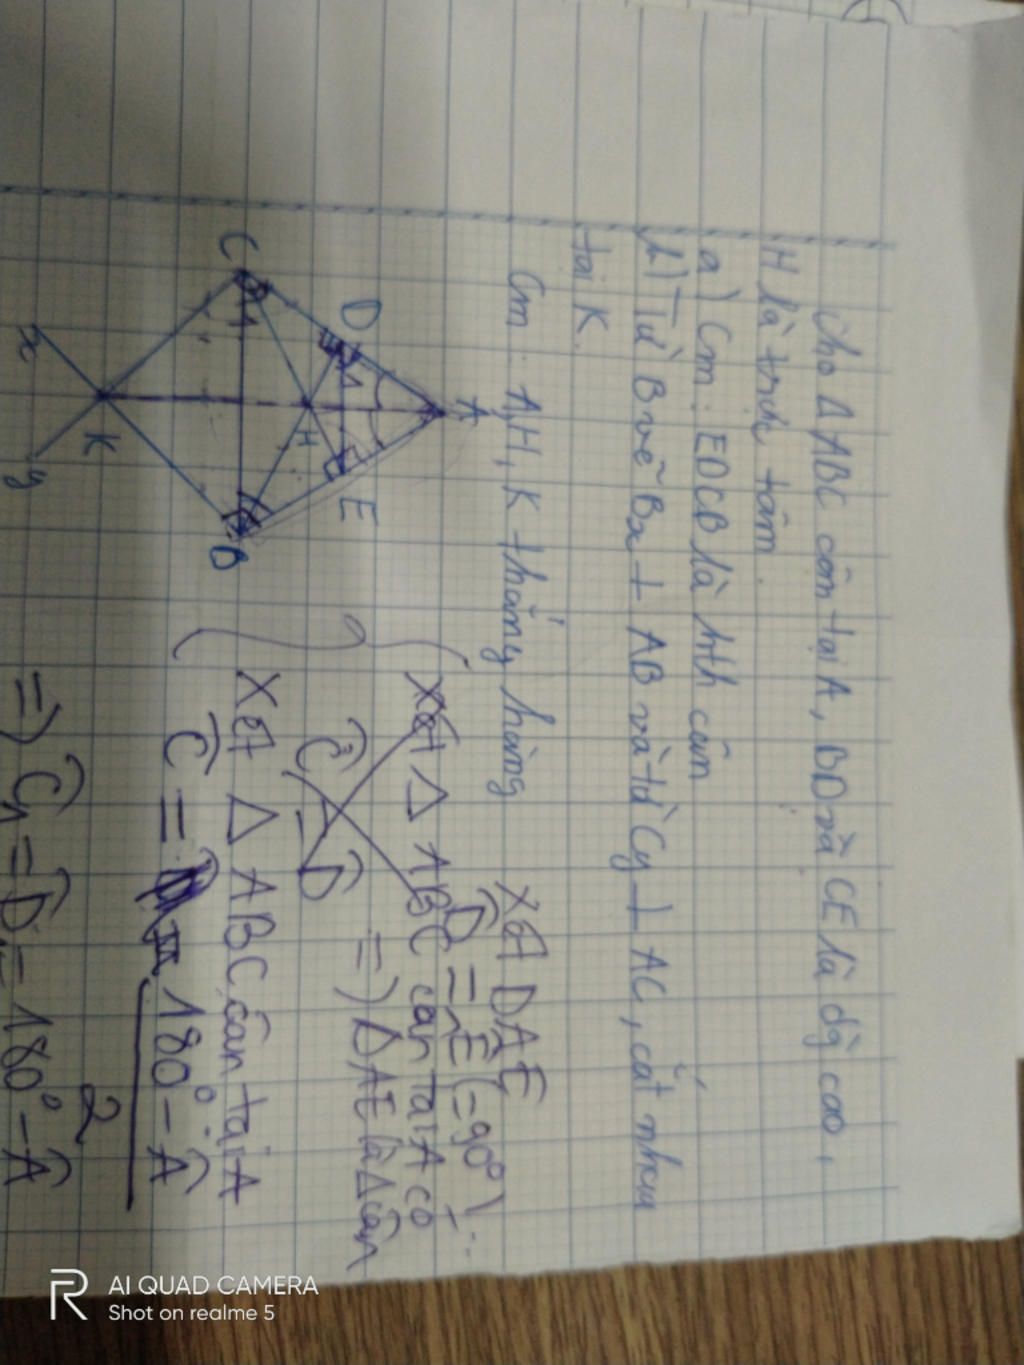 Cho Δ ABC cân tại A, BD và CE là dg cao,
H là trực tâm.
a) Cm: EDCB là hth cân
b) Từ B vẽ Bx ⊥ AB và từ Cy ⊥ AC, cắt nhau
tại K.
Cm: A, H, K thẳng hàng
A
D
E
H
C
1
B
K
x
y
Xét DAE
D = E (= 90°)
Xét Δ ABC cân tại A có
C = D
=> DAE là Δ cân
Xét Δ ABC cân tại A
C = 180° - A
2
=> C1 = D1 = 180° - A
AI QUAD CAMERA
Shot on realme 5